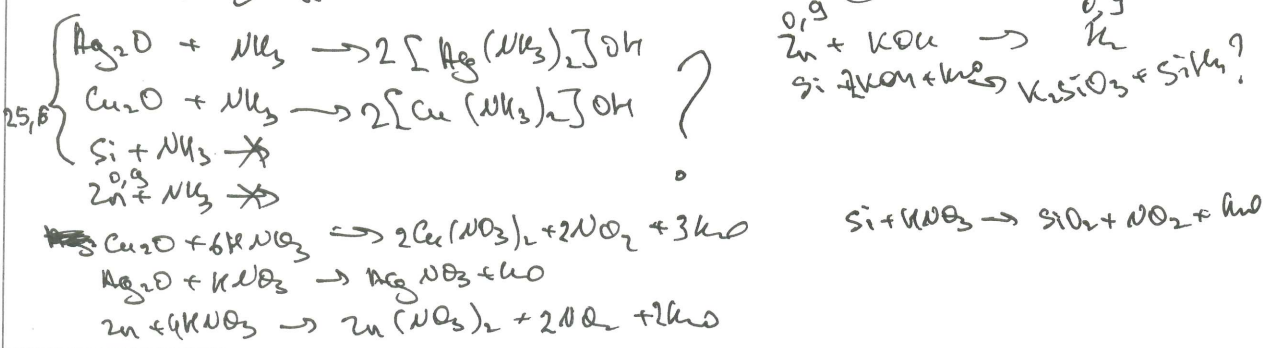 Ag₂O + NH₃ → 2[Ag(NH₃)₂]OH
Cu₂O + NH₃ → 2[Cu(NH₃)₂]OH
25,6
Si + NH₃ ↛
0,9
Zn + NH₃ ↛
?
Cu₂O + 6HNO₃ → 2Cu(NO₃)₂ + 2NO₂ + 3H₂O
Ag₂O + HNO₃ → AgNO₃ + H₂O
Zn + 4HNO₃ → Zn(NO₃)₂ + 2NO₂ + 2H₂O
0,9
Zn + KOH → H₂
Si + 2KOH + H₂O → K₂SiO₃ + SiH₄?
Si + HNO₃ → SiO₂ + NO₂ + H₂O